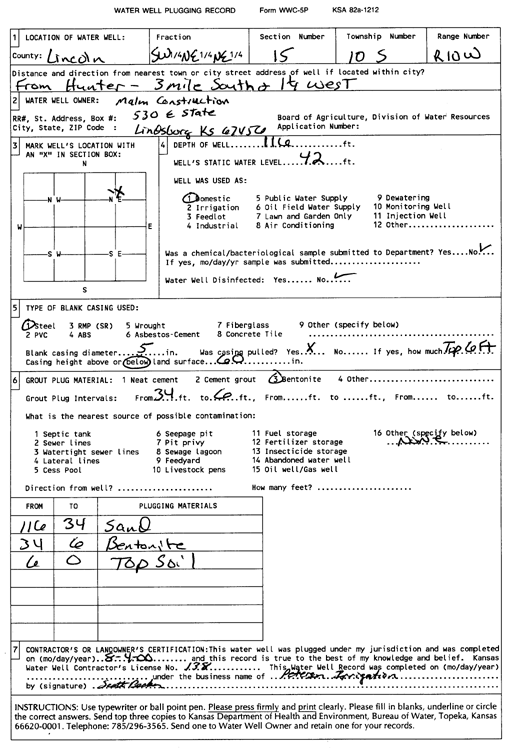 WATER WELL PLUGGING RECORD Form WWC-5P KSA 82a-1212
1 LOCATION OF WATER WELL: Fraction Section Number Township Number Range Number
County: Lincoln SW1/4NE1/4NE1/4 15 10 S R10W
Distance and direction from nearest town or city street address of well if located within city?
From Hunter - 3 mile South & 1¼ West
2 WATER WELL OWNER: Malm Construction
RR#, St. Address, Box #: 530 E State Board of Agriculture, Division of Water Resources
City, State, ZIP Code : Lindsborg KS 67456 Application Number:
3 MARK WELL'S LOCATION WITH AN "X" IN SECTION BOX:
N W N E
W E
S W S E
S
4 DEPTH OF WELL....116....ft.
WELL'S STATIC WATER LEVEL....42....ft.
WELL WAS USED AS:
1 Domestic 5 Public Water Supply 9 Dewatering
2 Irrigation 6 Oil Field Water Supply 10 Monitoring Well
3 Feedlot 7 Lawn and Garden Only 11 Injection Well
4 Industrial 8 Air Conditioning 12 Other....
Was a chemical/bacteriological sample submitted to Department? Yes....No.✓
If yes, mo/day/yr sample was submitted....
Water Well Disinfected: Yes..... No.✓
5 TYPE OF BLANK CASING USED:
1 Steel 3 RMP (SR) 5 Wrought 7 Fiberglass 9 Other (specify below)
2 PVC 4 ABS 6 Asbestos-Cement 8 Concrete Tile ....
Blank casing diameter....5....in. Was casing pulled? Yes.X.. No..... If yes, how much Top 6 Ft
Casing height above or below land surface...60...in.
6 GROUT PLUG MATERIAL: 1 Neat cement 2 Cement grout 3 Bentonite 4 Other....
Grout Plug Intervals: From.34.ft. to.6.ft., From......ft. to ......ft., From...... to......ft.
What is the nearest source of possible contamination:
1 Septic tank 6 Seepage pit 11 Fuel storage 16 Other (specify below)
2 Sewer lines 7 Pit privy 12 Fertilizer storage ..NONE..
3 Watertight sewer lines 8 Sewage lagoon 13 Insecticide storage
4 Lateral lines 9 Feedyard 14 Abandoned water well
5 Cess Pool 10 Livestock pens 15 Oil well/Gas well
Direction from well? .................... How many feet? ....................
FROM TO PLUGGING MATERIALS
116 34 Sand
34 6 Bentonite
6 0 Top Soil
7 CONTRACTOR'S OR LANDOWNER'S CERTIFICATION:This water well was plugged under my jurisdiction and was completed
on (mo/day/year)..8-4-00.... and this record is true to the best of my knowledge and belief. Kansas
Water Well Contractor's License No. .138.......... This Water Well Record was completed on (mo/day/year)
.................... under the business name of ..Peterson Irrigation....
by (signature)
INSTRUCTIONS: Use typewriter or ball point pen. Please press firmly and print clearly. Please fill in blanks, underline or circle
the correct answers. Send top three copies to Kansas Department of Health and Environment, Bureau of Water, Topeka, Kansas
66620-0001. Telephone: 785/296-3565. Send one to Water Well Owner and retain one for your records.